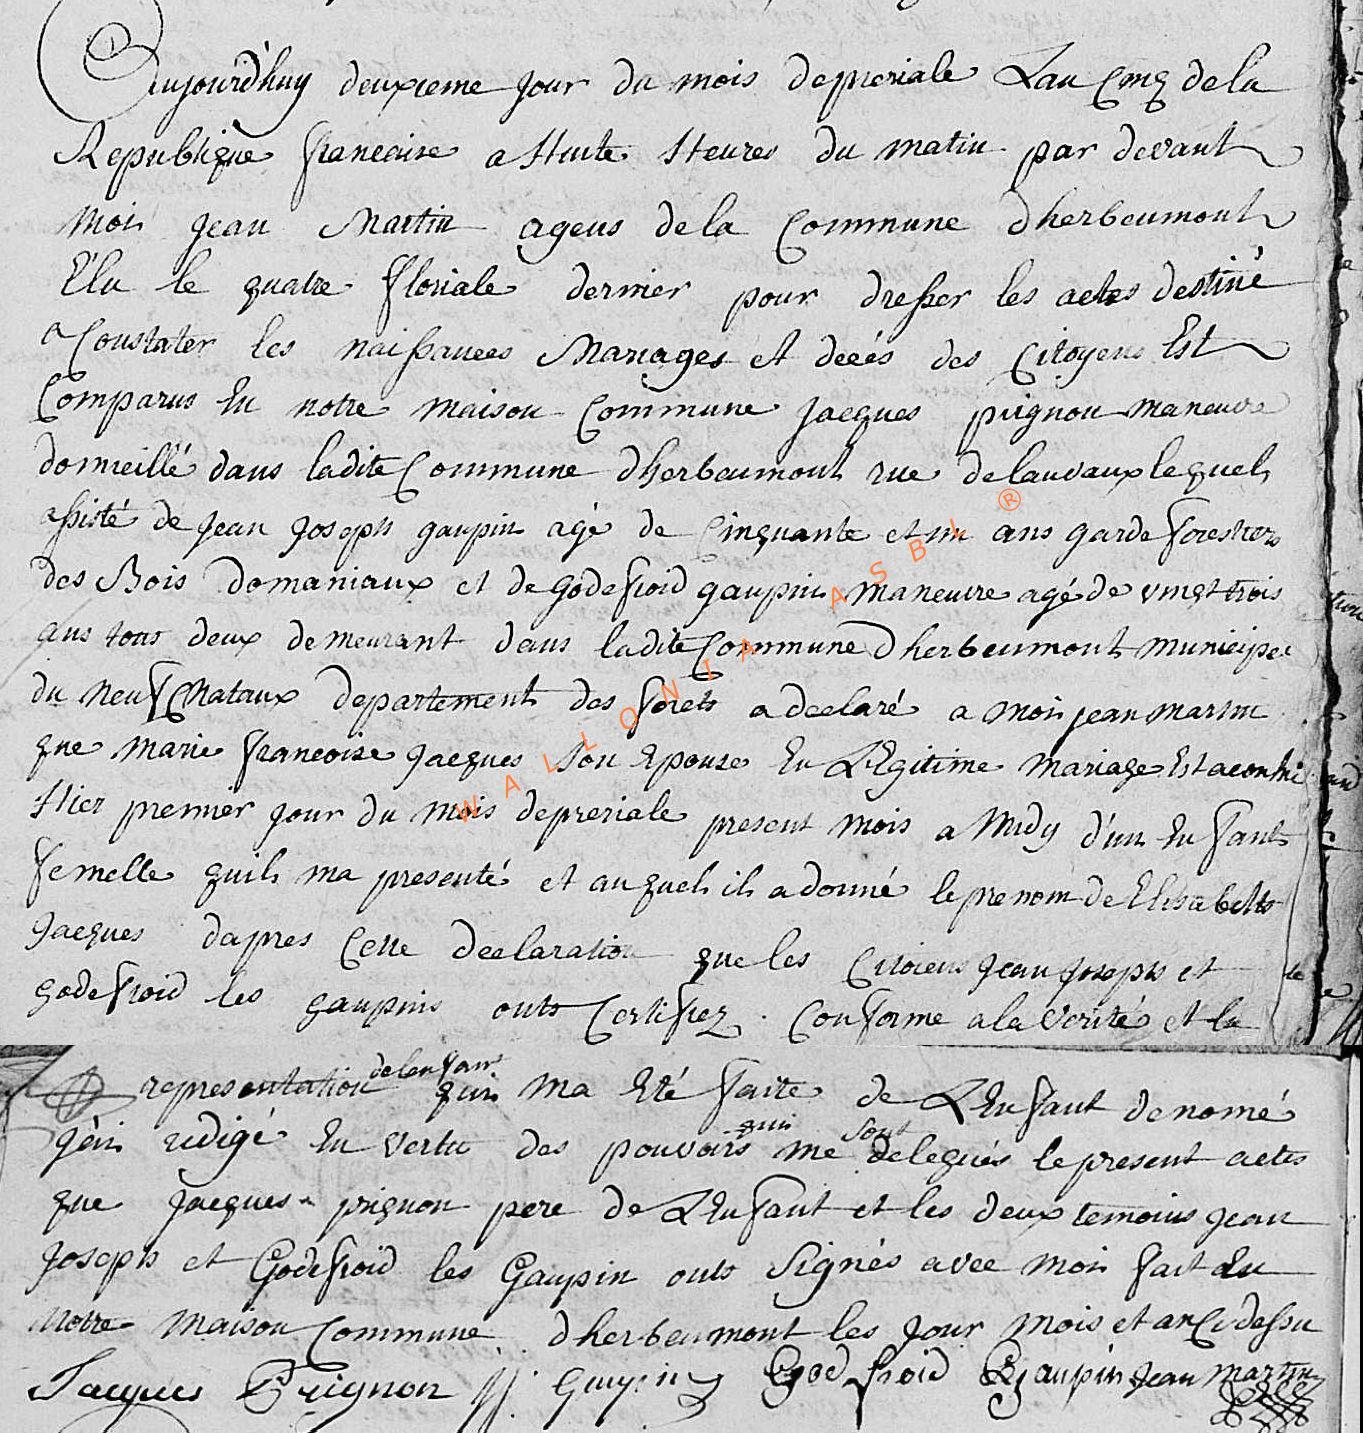 Aujourd'huy deuxieme jour du mois depreriale Lan Cinq dela
Republique francoise a Huite Heures du matin par devant
moi jean Martin agens dela Commune dherbeumont
Elu le quatre floriale dernier pour dresser les actes destiné
a Constater les naissances Mariages et décés des Citoyens Est
Comparus En notre maison Commune jacques prignon maneuvre
domicillé dans ladite Commune dherbeumont rue delauvaux lequel
assisté de jean joseph gaupin agé de Cinquante et un ans garde forestier
des Bois domaniaux et de godefroid gaupin maneuvre agé de vingt trois
ans tous deux demeurant dans ladite Commune dherbeumont municipe
du neufchataux departement des forets a declaré a moi jean martin
que marie francoise jacques son Epouse En LEgitime mariage Est acouhé
Hier premier jour du mois depreriale present mois a midy d'un Enfant
femelle quil ma presenté et auquel il a donné le prenom de Elisabeth
jacques dapres Cette declaration que les Citoiens jean joseph et
godefroid les gaupins onts Certifiez . Conforme a la verité et la
representation delenfant qui ma Eté faite de LEnfant denomé
jéni redigé En vertu des pouvoirs qui me sont delegués le present actes
que jacques prignon pere de LEnfant et les deux temoins jean
joseph et Godefroid les Gaupin onts signés avec moi fait En
notre maison Commune dherbeumont les jour mois et an Cy dessu
Jacques Prignon jj. Gaupin Godfroid Gaupin jean martin
WALLONIA ASBL ®